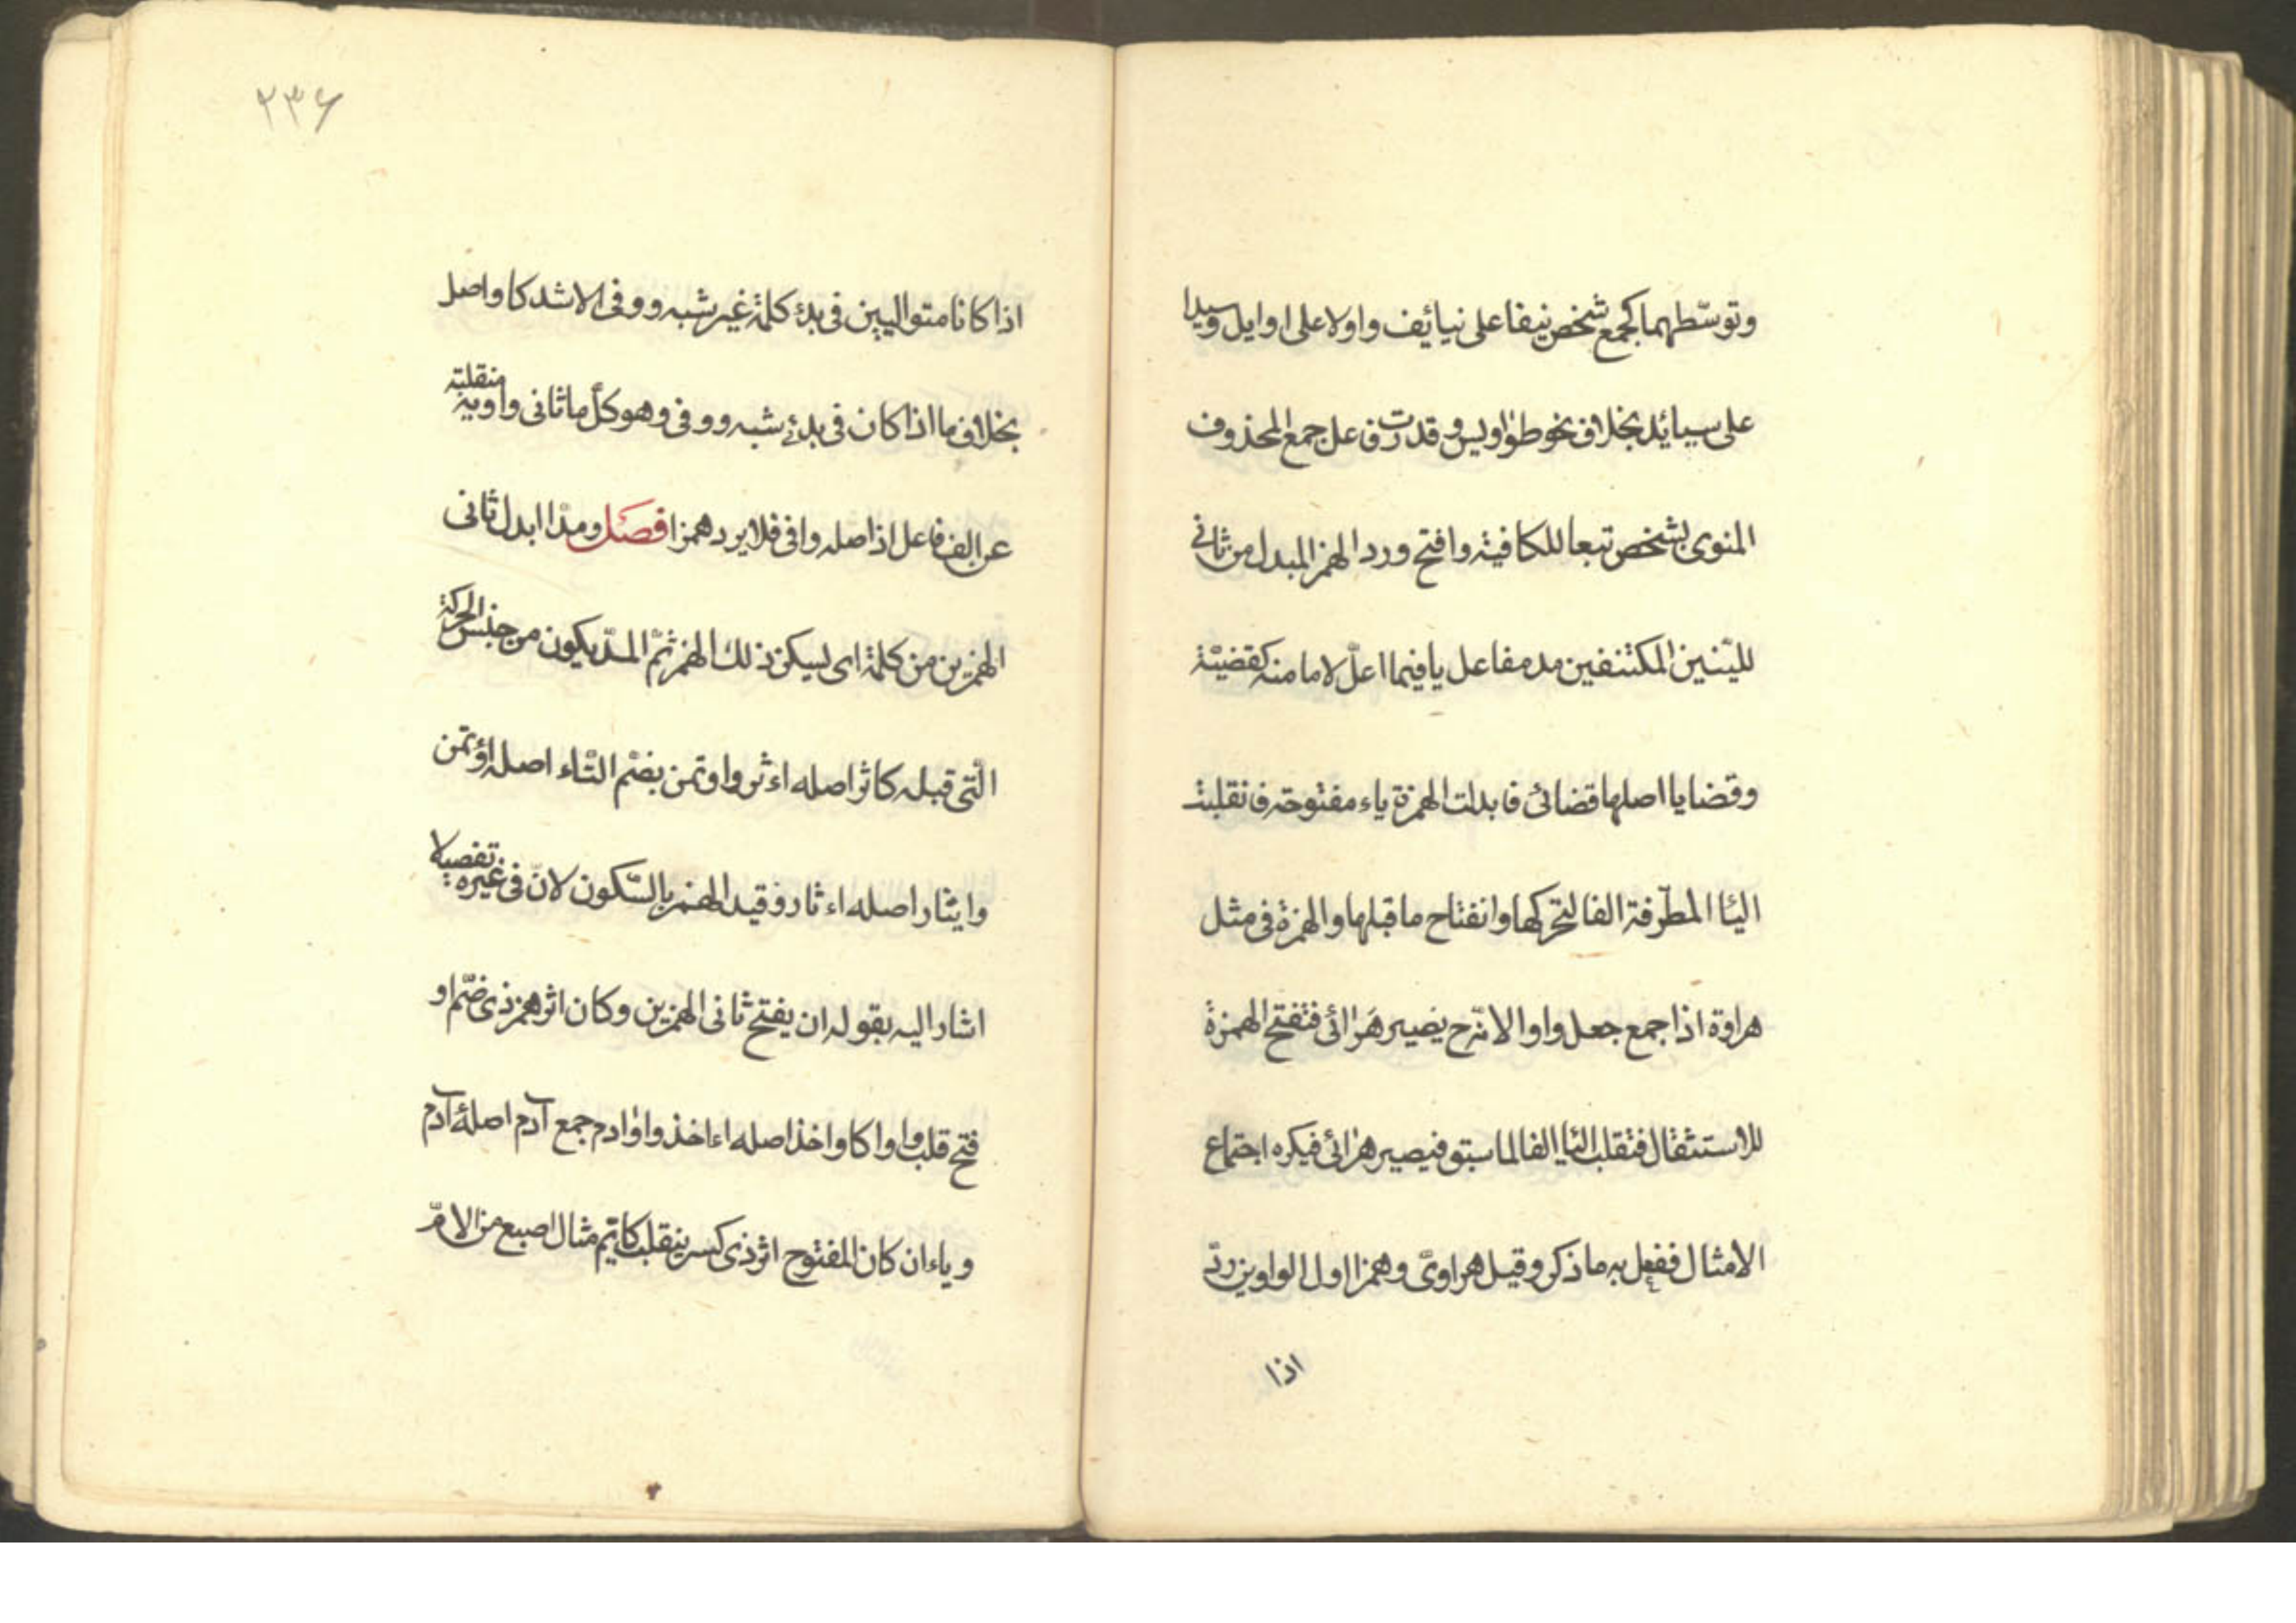 وتوسّطهما كجمع شخص نيفا على نيائف واولا على اوايل وسيدا
على سيائد بخلاف نحو طواويس و قدرت فاعل جمع المحذوف
المنوى بشخص تبعا للكافية وافتح ورد الهمز المبدل من ثانى
اللينين المكتنفين مد مفاعل يا فيما اعلّ لاما منه كقضيّة
وقضايا اصلها قضائى فابدلت الهمزة ياء مفتوحة فانقلبت
اليا المطرّفة الفا لتحركها وانفتاح ما قبلها والهمزة فى مثل
هراوة اذا جمع جعل واوا لانّه ح يصير هرائى فتفتح الهمزة
للاستثقال فتقلب اليا الفا لما سبق فيصير هرائى فيكره اجتماع
الامثال ففعل به ما ذكر وقيل هراوىّ وهمزا اول الواوين ردّ
اذا
٢٣۶
اذا كانا متواليين فى بدء كلمة غير شبه ووفى الاشد كاواصل
بخلاف ما اذا كان فى بدئ شبه ووفى وهو كلّ ما ثانى واويه منقلبة
عن الف فاعل اذ اصله وافى فلا يرد همزا فصَل ومدّا ابدل ثانى
الهمزين من كلمة اى ليسكن ذلك الهمز ثمّ المدّ يكون من جنس الحركة
الّتى قبله كاثر اصله اءثر واوتمن بضم التّاء اصله اؤتمن
وايثار اصله اءثار وقيد الهمز بالسّكون لانّ فى غيره تفصيلا
اشار اليه بقوله ان يفتح ثانى الهمزين وكان اثر همز ذى ضمّ او
فتح قلب واوا كاواخذ اصله اءاخذ واوادم جمع آدم اصله أآدم
وياء ان كان المفتوح اثر ذى كسر ينقلب كايمّ مثال اصبع من الامّ